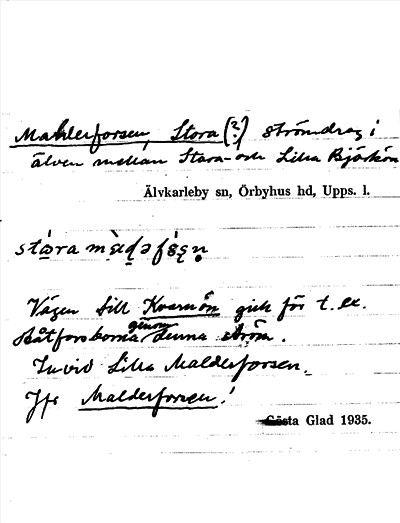 Mahlerforsen, Stora (?) strömdrag i
älven mellan Stora- och Lilla Björkön
Älvkarleby sn, Örbyhus hd, Upps. l.
Vägen till Kvarnön gick för t. ex.
Båtforsborna genom denna ström.
Invid Lilla Malderforsen.
Jfr Malderforsen!
Gösta Glad 1935.